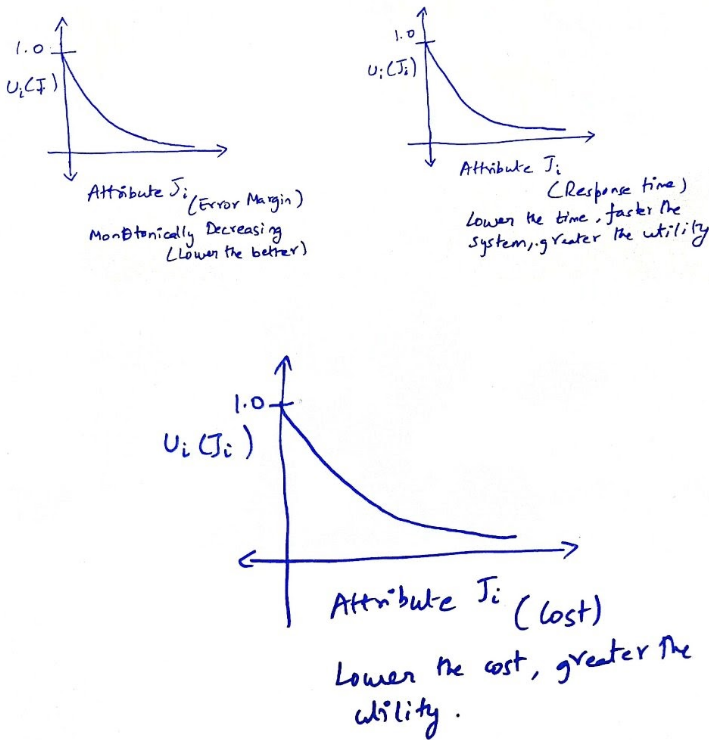 1.0
U_i(J)
Attribute J_i (Error Margin)
Monotonically Decreasing
(Lower the better)
1.0
U_i(J_i)
Attribute J_i
(Response time)
Lower the time, faster the
system, greater the utility
1.0
U_i(J_i)
Attribute J_i (Cost)
Lower the cost, greater the
utility.